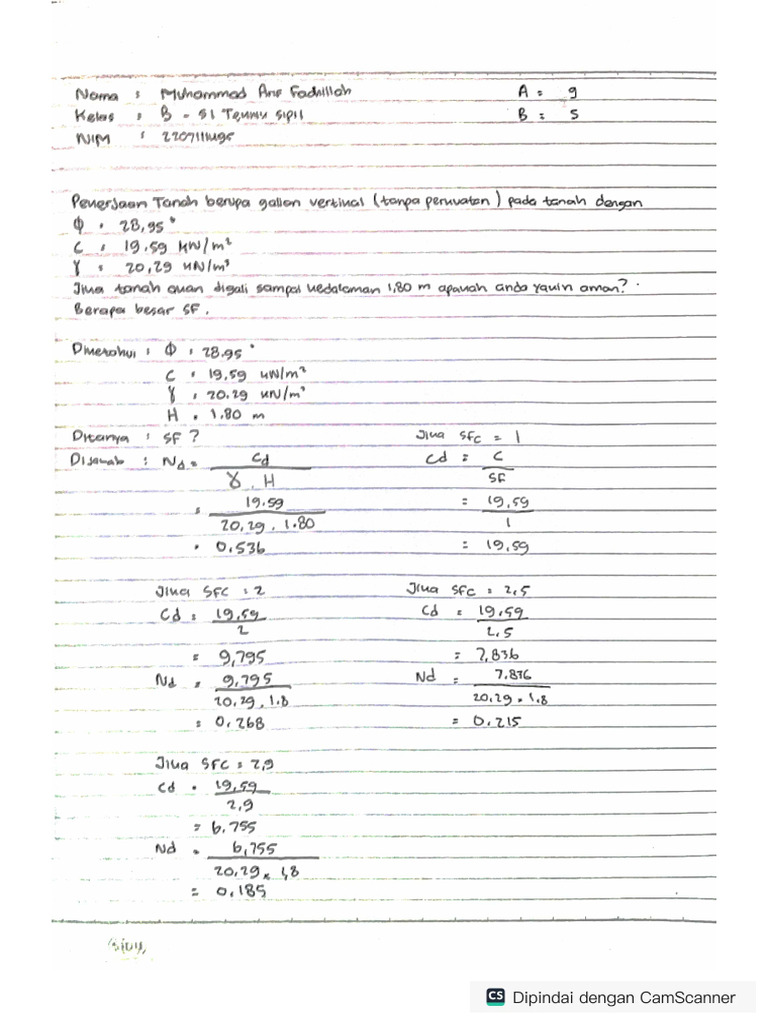 Nama : Muhammad Arif Fadhillah A = 9
Kelas : B - S1 Teknik Sipil B = 5
NIM : 2207111495
Pekerjaan Tanah berupa galian vertikal (tanpa perkuatan) pada tanah dengan
Φ = 28,95°
C = 19,59 kN/m²
γ = 20,29 kN/m³
Jika tanah akan digali sampai kedalaman 1,80 m apakah anda yakin aman?
Berapa besar SF.
Diketahui : Φ = 28.95°
C = 19,59 kN/m²
γ = 20.29 kN/m³
H = 1.80 m
Ditanya : SF ? Jika SFc = 1
Dijawab : Nd = Cd / γ . H Cd = C / SF
= 19.59 / 20,29 . 1.80 = 19,59 / 1
= 0,536 = 19,59
Jika SFC = 2 Jika SFc = 2,5
Cd = 19,59 / 2 Cd = 19,59 / 2,5
= 9,795 = 7,836
Nd = 9,795 / 20,29 . 1.8 Nd = 7.836 / 20,29 × 1.8
= 0,268 = 0,215
Jika SFC = 2,9
Cd = 19,59 / 2,9
= 6,755
Nd = 6,755 / 20,29 × 1,8
= 0,185
CS Dipindai dengan CamScanner